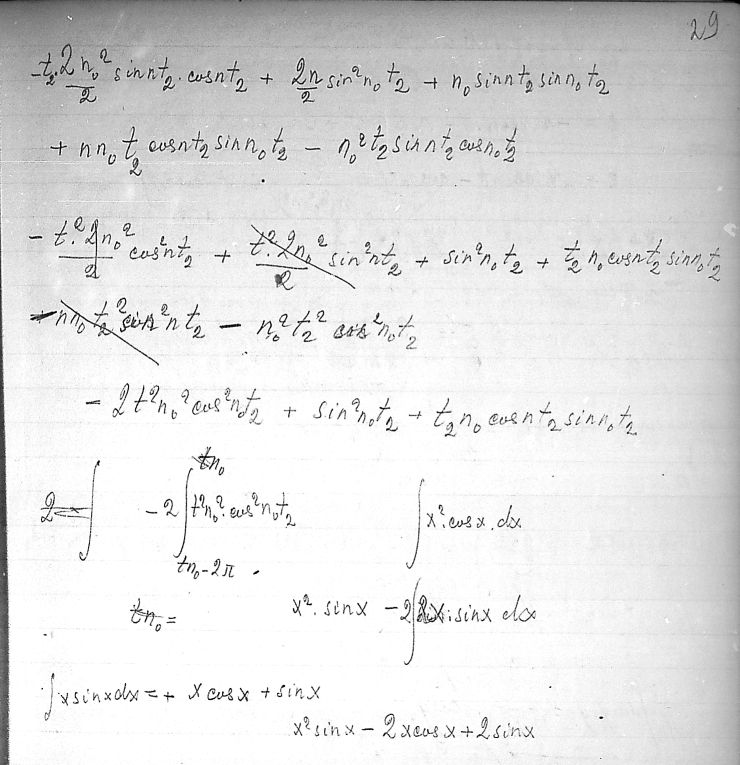 29
-t₂ 2n₀²/2 sin nt₂ . cos nt₂ + 2n/2 sin² n₀ t₂ + n₀ sin nt₂ sin n₀ t₂
+ n n₀ t₂ cos nt₂ sin n₀ t₂ - n₀² t₂ sin nt₂ cos n₀ t₂
- t².2n₀²/2 cos² nt₂ + t².2n₀²/2 sin² nt₂ + sin² n₀ t₂ + t₂ n₀ cos nt₂ sin n₀ t₂
- n n₀ t₂² sin² n t₂ - n₀² t₂² cos² n₀ t₂
- 2t² n₀² cos² n₀t₂ + sin² n₀t₂ + t₂ n₀ cos nt₂ sin n₀ t₂
tn₀
2 ∫ -2 ∫ t² n₀² cos² n₀ t₂ ∫ x². cos x. dx
tn₀-2π
tn₀ = x². sin x - 2∫ x. sin x dx
∫ x sin x dx = + x cos x + sin x
x² sin x - 2x cos x + 2 sin x